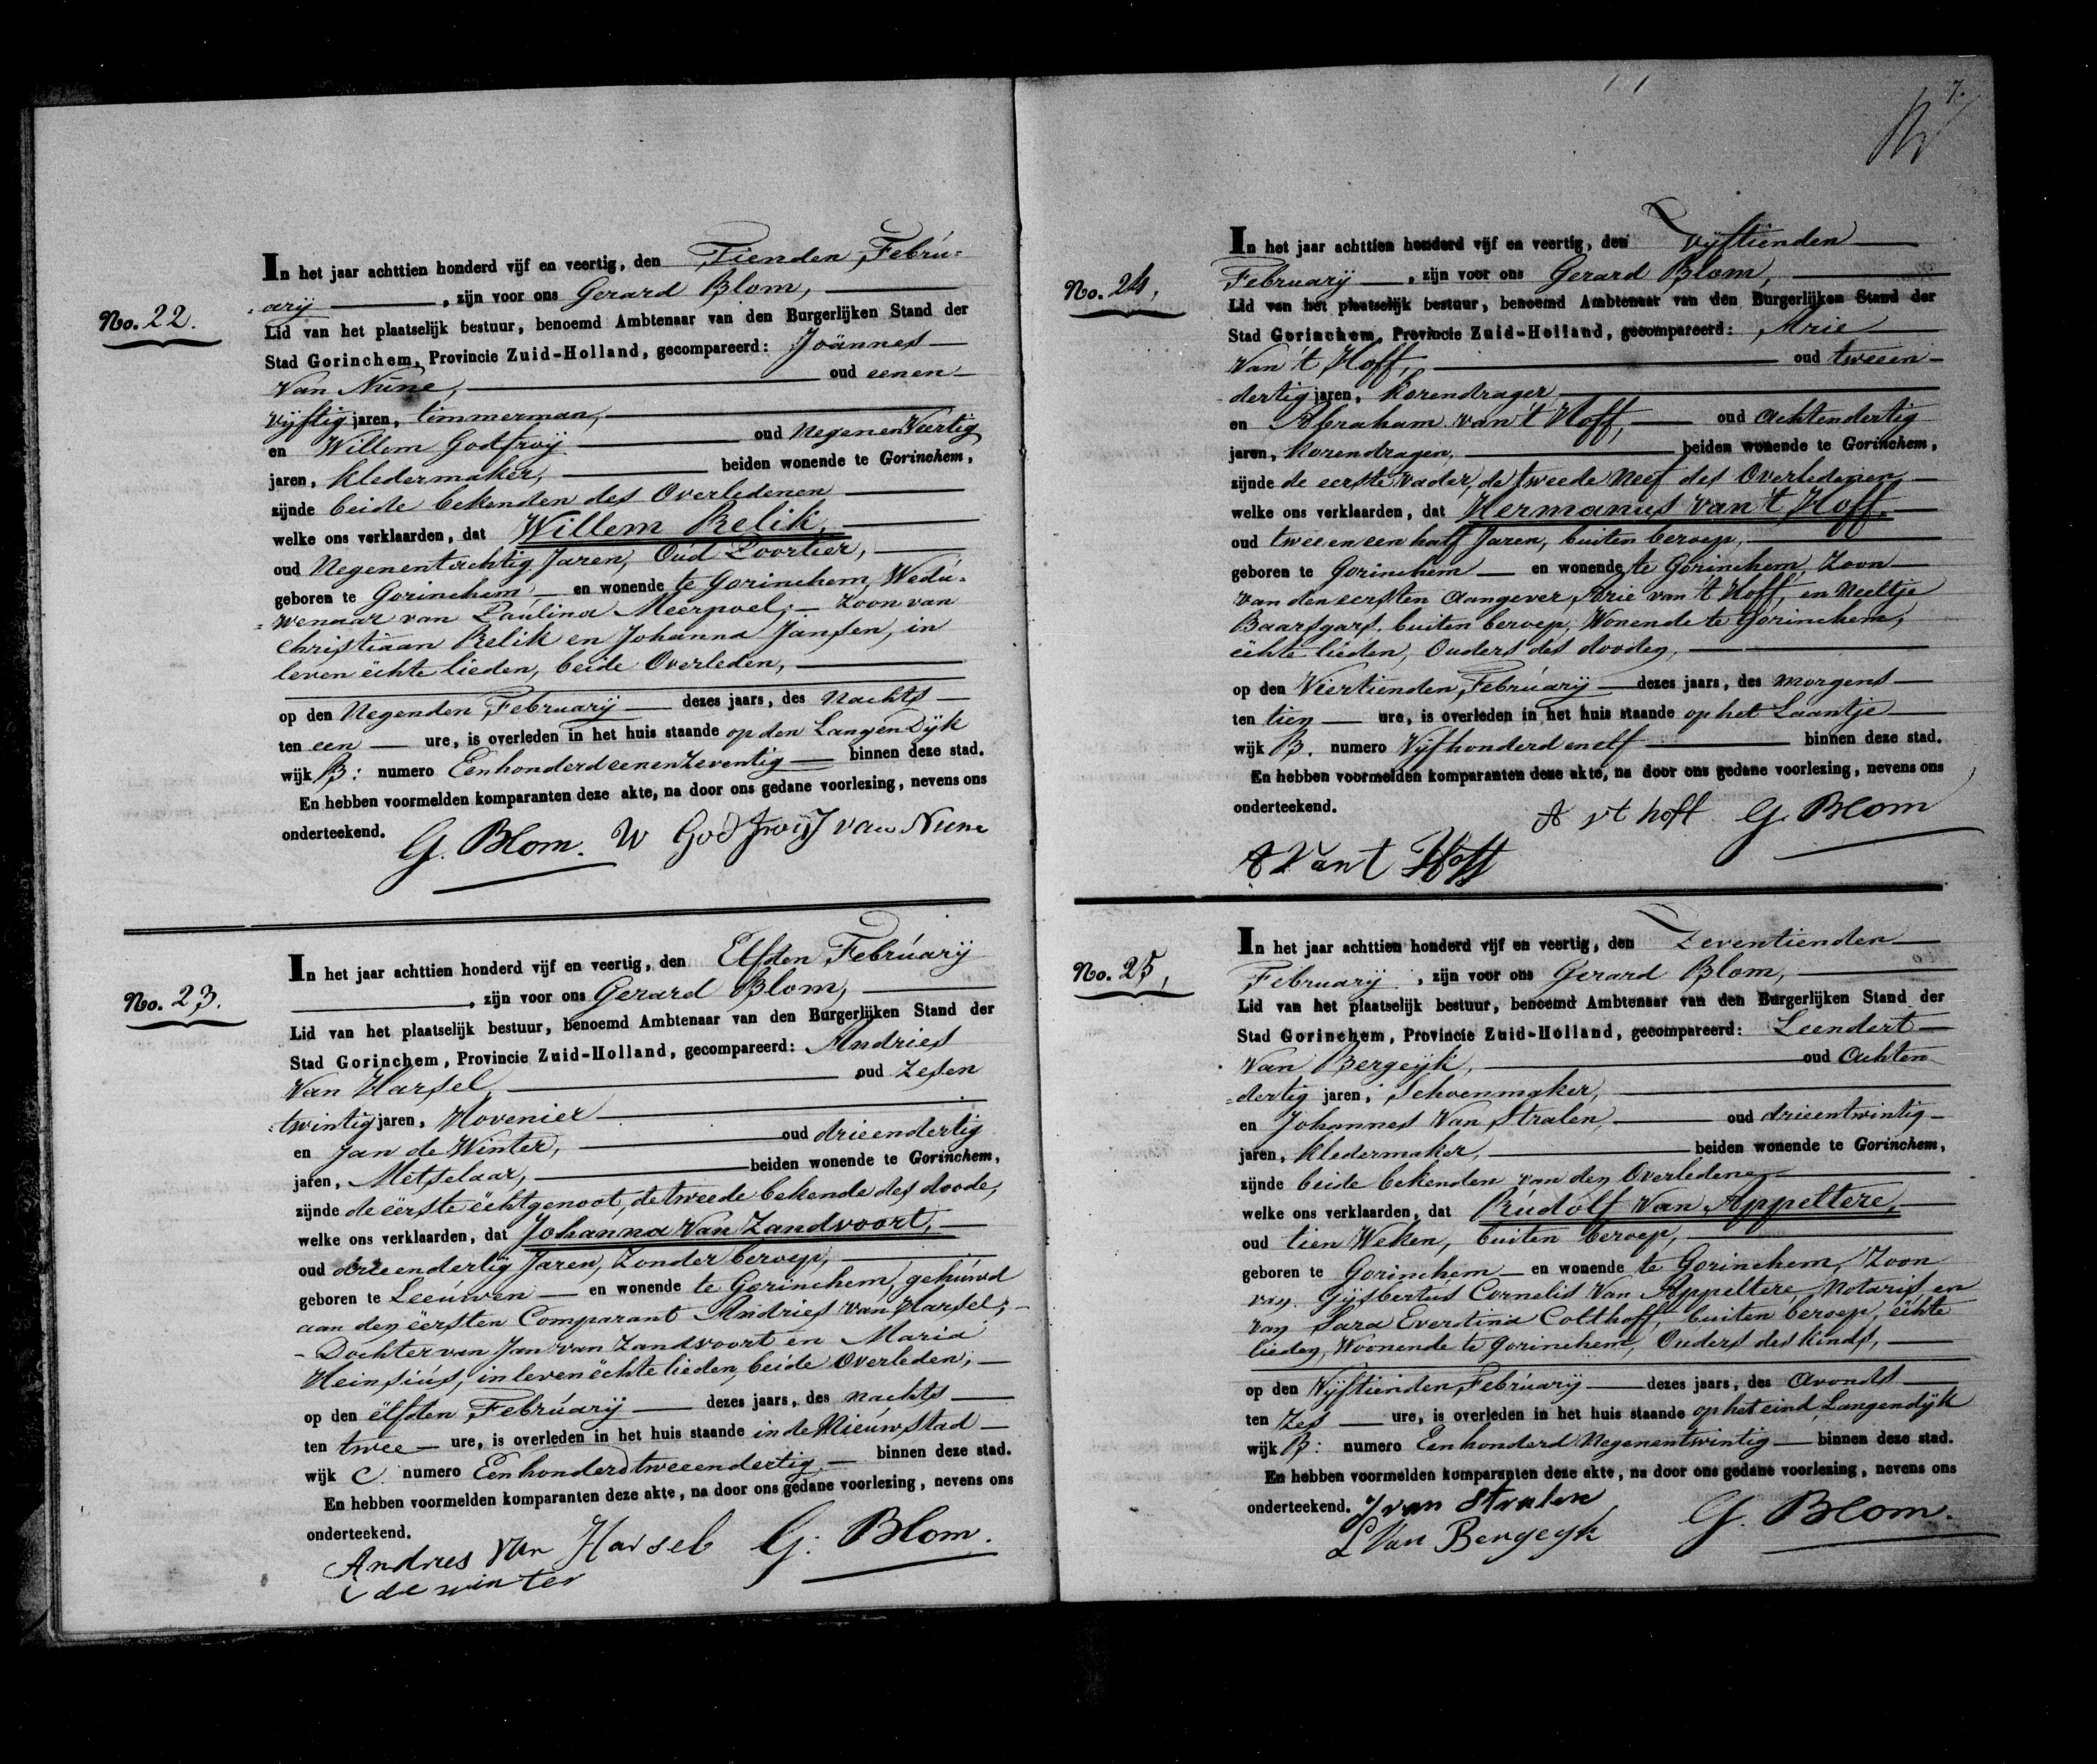 No. 22.
In het jaar achttien honderd vijf en veertig, den Tienden Febru-
ary, zijn voor ons Gerard Blom,
Lid van het plaatselijk bestuur, benoemd Ambtenaar van den Burgerlijken Stand der
Stad Gorinchem, Provincie Zuid-Holland, gecompareerd: Joännes
Van Nüne, oud eenen
vijftig jaren, timmerman,
en Willem Godfroij oud NegenenVeertig
jaren, kledermaker, beiden wonende te Gorinchem,
zijnde beide bekenden des Overledenen
welke ons verklaarden, dat Willem Relik,
oud Negenentachtig Jaren, Oud Poortier,
geboren te Gorinchem en wonende te Gorinchem, Wedu-
wenaar van Paulina Meerpoel; Zoon van
Christiaan Relik en Johanna Jansen, in
leven ëchte lieden, beide Overleden,
op den Negenden February dezes jaars, des Nachts
ten een ure, is overleden in het huis staande op den LangenDijk
wijk B: numero EenhonderdeenenZeventig binnen deze stad.
En hebben voormelden komparanten deze akte, na door ons gedane voorlezing, nevens ons
onderteekend.
G. Blom. W Godfroij J van Nune
No. 23.
In het jaar achttien honderd vijf en veertig, den Elfden February
, zijn voor ons Gerard Blom,
Lid van het plaatselijk bestuur, benoemd Ambtenaar van den Burgerlijken Stand der
Stad Gorinchem, Provincie Zuid-Holland, gecompareerd: Andries
Van Harsel, oud Zesen
twintig jaren, Hovenier
en Jan de Winter, oud drieendertig
jaren, Metselaar, beiden wonende te Gorinchem,
zijnde de eërste ëchtgenoot, de tweede bekende des doode,
welke ons verklaarden, dat Johanna Van Zandvoort,
oud drieendertig Jaren, Zonder beroep,
geboren te Leeuwen en wonende te Gorinchem, gehuwd
aan den eërsten Comparant Andries van Harsel;
Dochter van Jan van Zandvoort en Maria
Heinsius, in leven ëchte lieden, beide Overleden;
op den ëlfden February dezes jaars, des nachts
ten twee ure, is overleden in het huis staande in de Nieuwstad
wijk C. numero Eenhonderdtweeendertig binnen deze stad.
En hebben voormelden komparanten deze akte, na door ons gedane voorlezing, nevens ons
onderteekend.
Andries van Harsel G. Blom.
de winter
7.
No. 24,
In het jaar achttien honderd vijf en veertig, den Vijftienden
February, zijn voor ons Gerard Blom,
Lid van het plaatselijk bestuur, benoemd Ambtenaar van den Burgerlijken Stand der
Stad Gorinchem, Provincie Zuid-Holland, gecompareerd: Arie
Van 't Hoff, oud tweeen
dertig jaren, korendrager
en Abraham van 't Hoff, oud achtendertig
jaren, korendragen, beiden wonende te Gorinchem,
zijnde de eerste Vader, de tweede Neef des Overledenen
welke ons verklaarden, dat Hermanus van 't Hoff.
oud twee en een half Jaren, buiten beroep,
geboren te Gorinchem en wonende te Gorinchem, Zoon
van den eersten aangever Arie van 't Hoff, en Neeltje
Baarsgars. buiten beroep, Wonende te Gorinchem,
ëchte lieden, Ouders des dooden,
op den Viertienden February dezes jaars, des morgens
ten tien ure, is overleden in het huis staande op het Laantje
wijk B. numero Vijfhonderd enelf binnen deze stad.
En hebben voormelden komparanten deze akte, na door ons gedane voorlezing, nevens ons
onderteekend. A vt hoff G. Blom
A Van t Hoff
No. 25,
In het jaar achttien honderd vijf en veertig, den Zeventienden
February, zijn voor ons Gerard Blom,
Lid van het plaatselijk bestuur, benoemd Ambtenaar van den Burgerlijken Stand der
Stad Gorinchem, Provincie Zuid-Holland, gecompareerd: Leendert
Van Bergeijk, oud Achten
dertig jaren, Schoenmaker,
en Johannes Van Stralen, oud drieentwintig
jaren, kledermaker, beiden wonende te Gorinchem,
zijnde beide bekenden van den Overledene
welke ons verklaarden, dat Rudolf Van Appeltere,
oud tien Weken, buiten beroep,
geboren te Gorinchem en wonende te Gorinchem, Zoon
van Gijsbertus Cornelis Van Appeltere, Notaris en
van Sara Evertina Colthoff, buiten beroep, ëchte
lieden, Woonende te Gorinchem, Ouders des kinds,
op den Vijftienden February dezes jaars, des Avonds
ten Zes ure, is overleden in het huis staande op het eind Langendijk
wijk B: numero Eenhonderd Negenentwintig binnen deze stad.
En hebben voormelden komparanten deze akte, na door ons gedane voorlezing, nevens ons
onderteekend. J van Stralen G. Blom.
L Van Bergeyk